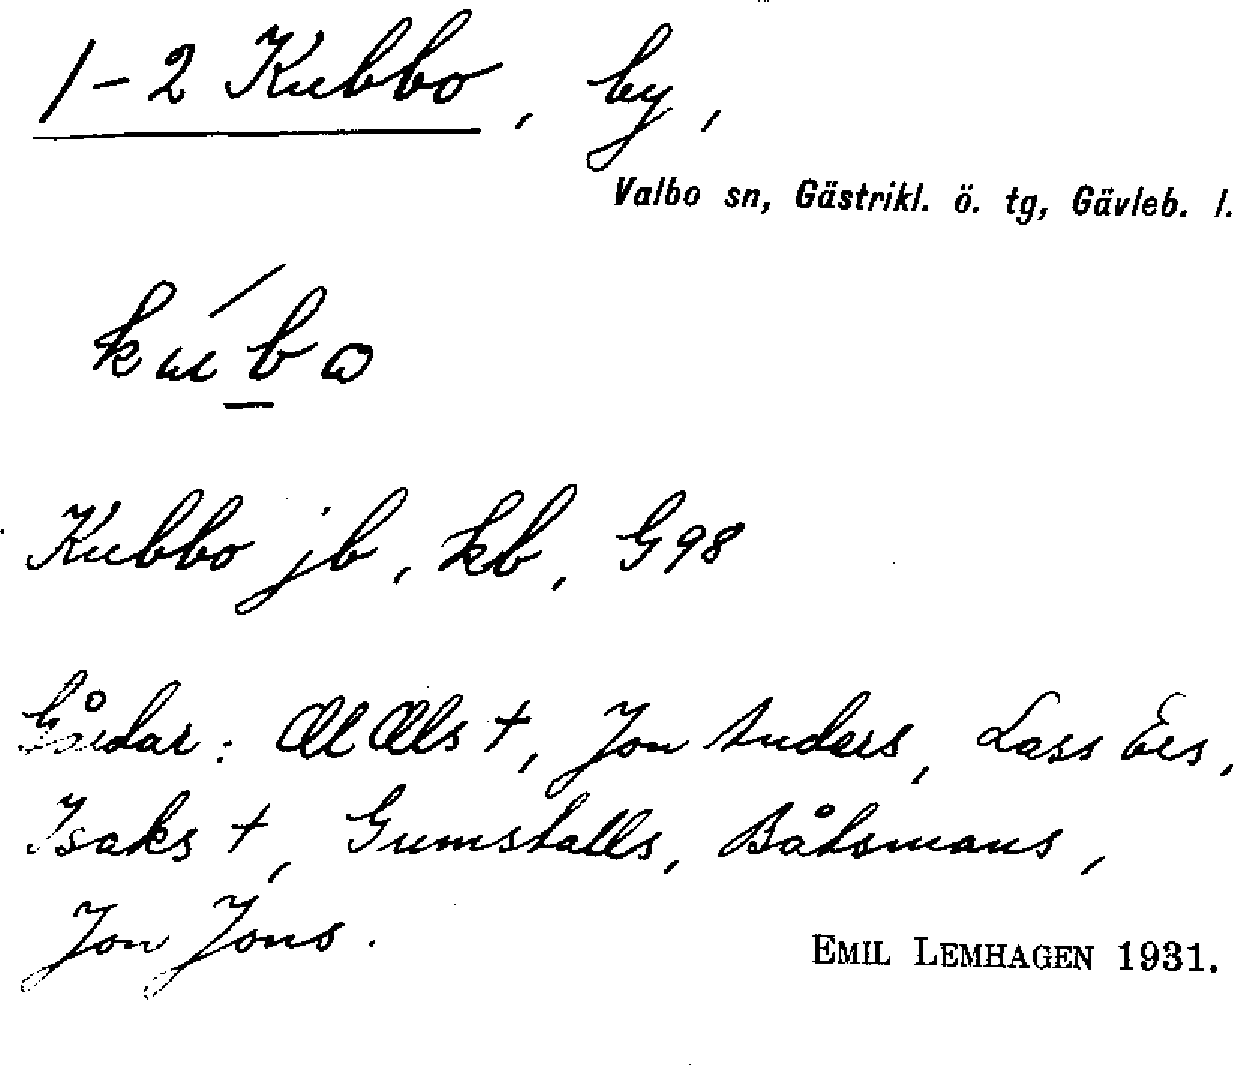 1-2 Kubbo, by,
Valbo sn, Gästrikl. ö. tg, Gävleb. l.
Kubbo jb, kb, G98
Gårdar: Ol Ols †, Jon Anders, Lass Ers,
Isaks †, Gumstalls, Båtsmans,
Jon Jons.
EMIL LEMHAGEN 1931.